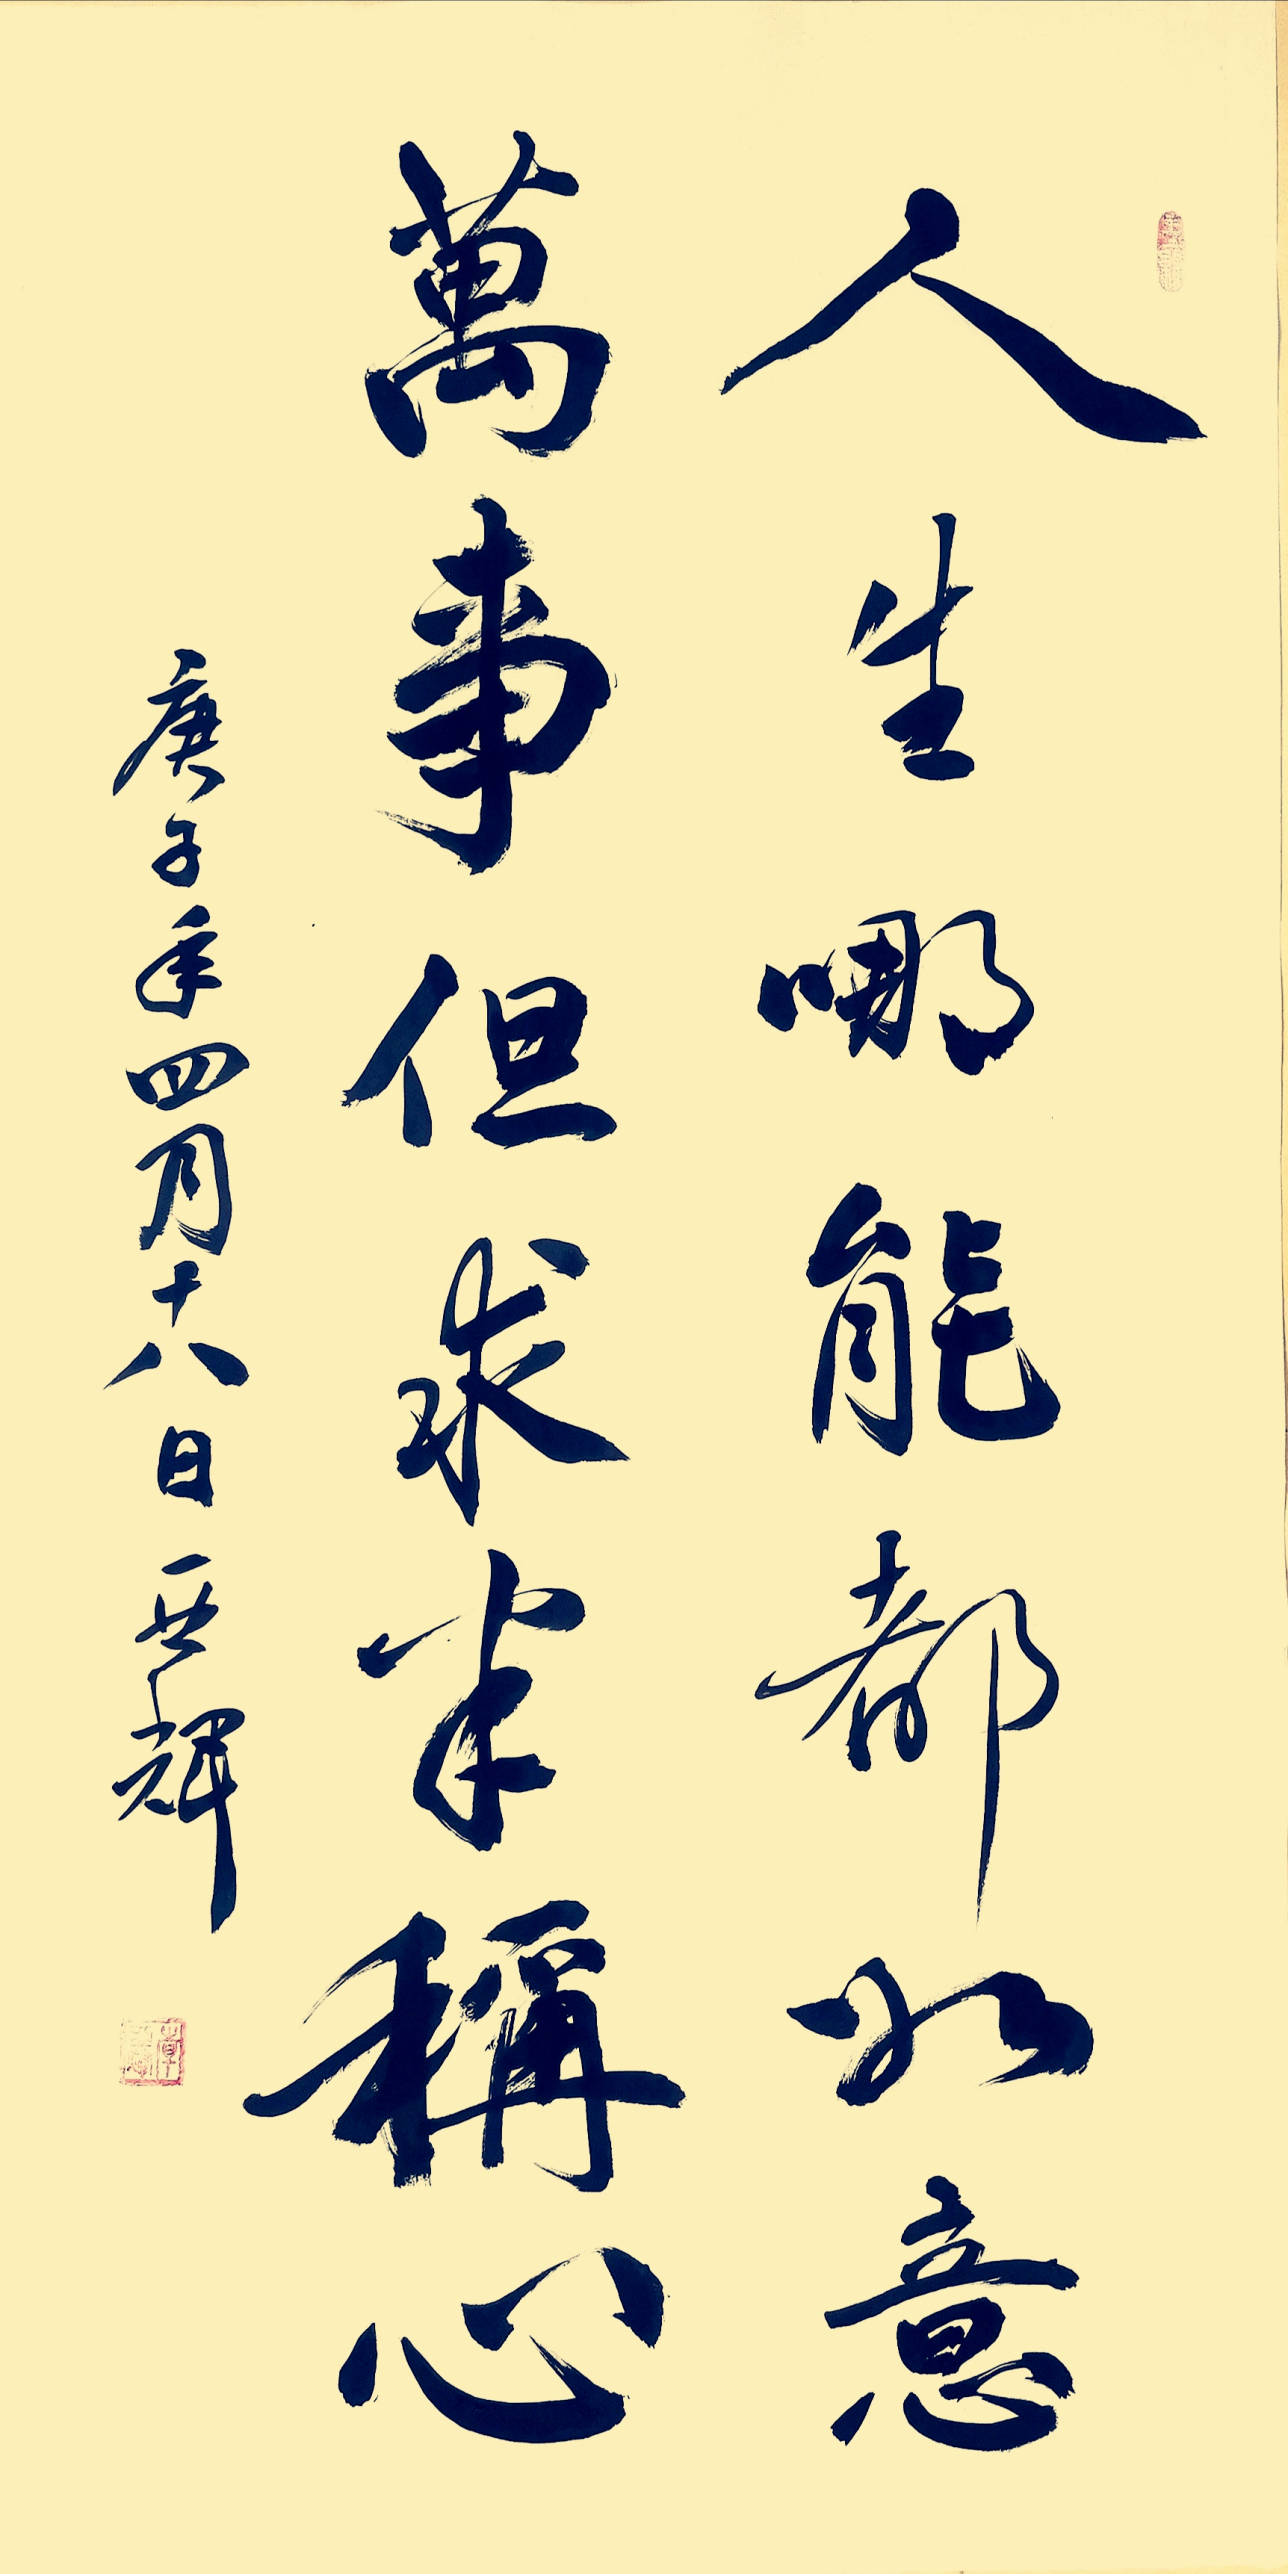 人生哪能都如意
萬事但求半稱心
庚子年四月十八日 亞輝